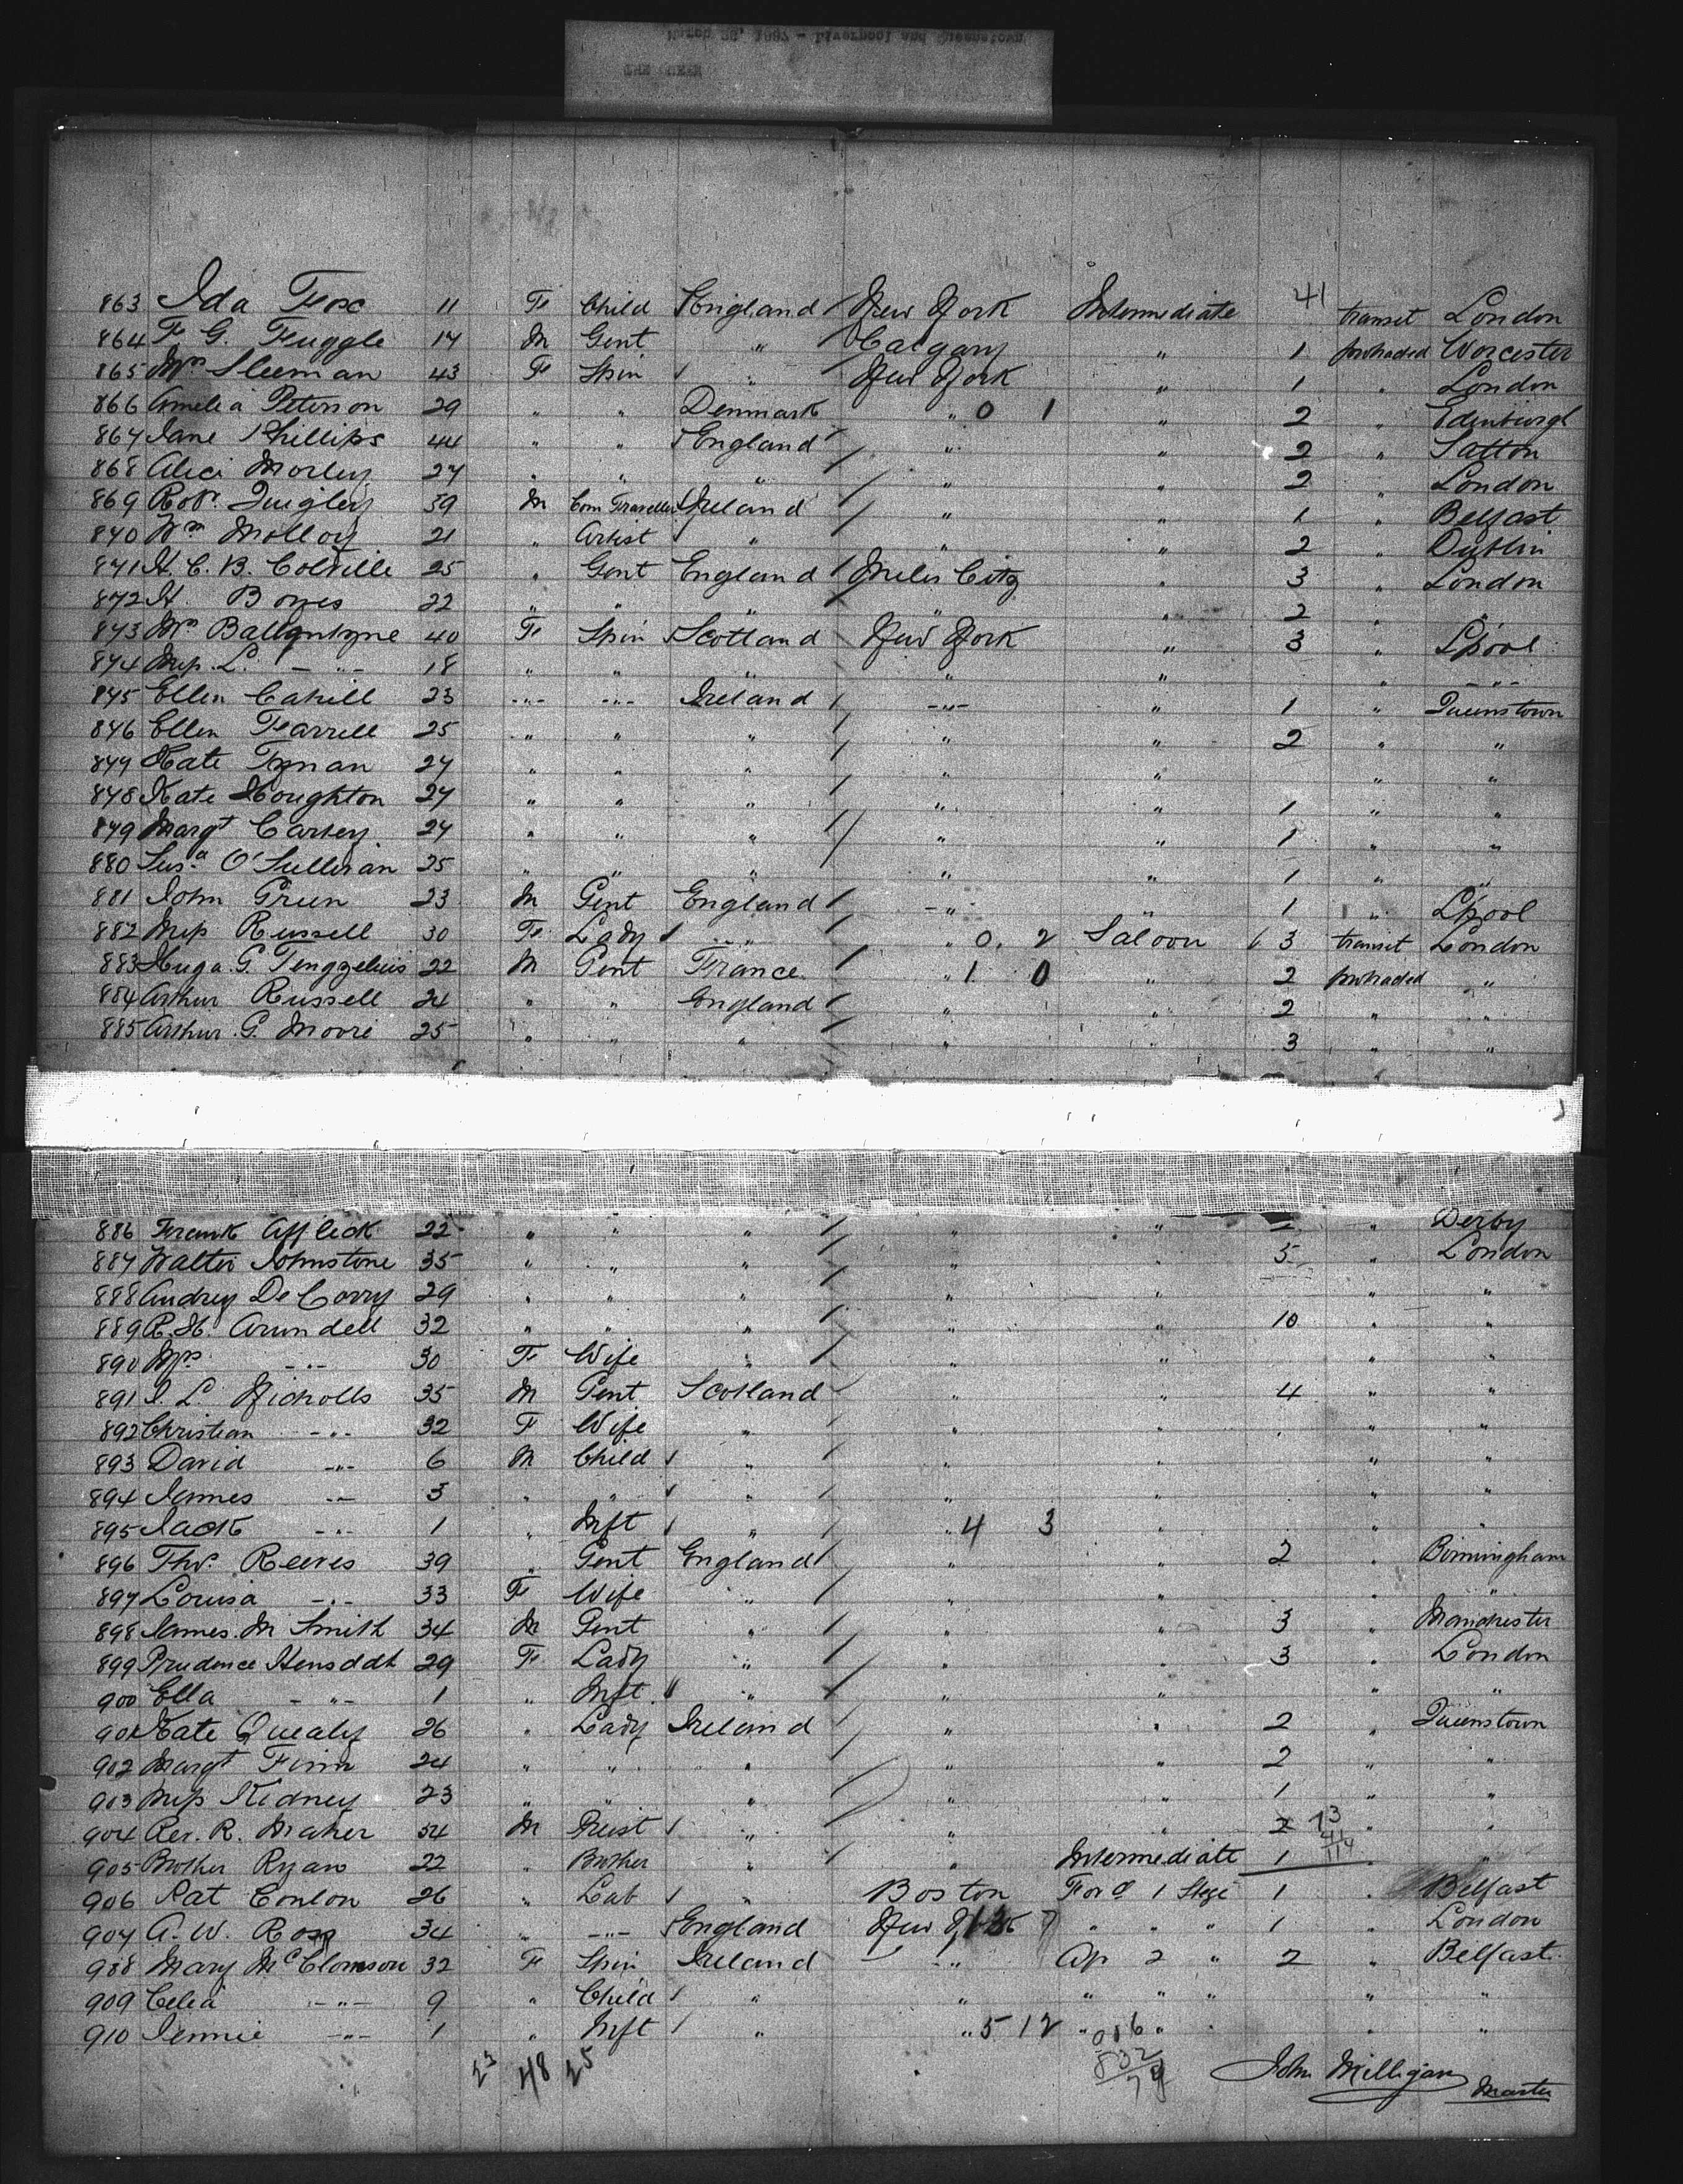 March 26, 1887 - Liverpool and Queenstown
THE QUEEN
41
863 Ida Fox 11 F Child England New York Intermediate transit London
864 F G. Fuggle 17 M Gent " Calgary " 1 protracted Worcester
865 Mrs Sleeman 43 F Spin " New York " 1 " London
866 Amelia Peterson 29 " " Denmark " 0 1 2 " Edinburgh
867 Jane Phillips 44 " " England " " 2 " Satton
868 Alice Morley 27 " " " " " 2 " London
869 Robt. Quigley 39 M Com Traveller Ireland " " 1 " Belfast
870 Wm Molloy 21 " Artist " " " 2 " Dublin
871 H. C. B. Colville 25 " Gent England Miles City " 3 " London
872 H. Boyes 22 " " " " " 2 " "
873 Mrs Ballantyne 40 F Spin Scotland New York " 3 " Lpool
874 Miss L. -"- 18 " " " " " -"-
875 Ellen Cahill 23 -"- -"- Ireland -"- " 1 " Queenstown
876 Ellen Farrell 25 " " " " " 2 " "
877 Kate Tynan 27 " " " " " " "
878 Kate Houghton 27 " " " " " 1 " "
879 Margt Carley 27 " " " " " 1 " "
880 Susa O'Sullivan 25 " " " " " 1 " "
881 John Green 23 M Gent England -"- " 1 " Lpool
882 Miss Russell 30 F Lady " " 0. 2 Saloon 6 3 transit London
883 Huga. G. Tenggelius 22 M Gent France " 1 0 " 2 protracted "
884 Arthur Russell 24 " " England " " 2 " "
885 Arthur. G. Moore 25 " " " " " 3 " "
886 Frank Affleck 22 " " " " " 2 " Derby
887 Walter Johnstone 35 " " " " " 5 " London
888 Audrey De Corry 29 " " " " " " "
889 R. H. Arundell 32 " " " " " 10 " "
890 Mrs. -"- 30 F Wife " " " " "
891 J. L. Nicholls 35 M Gent Scotland " " 4 " "
892 Christian -"- 32 F Wife " " " " "
893 David -"- 6 M Child " " " "
894 James -"- 3 " " " " " "
895 Jack -"- 1 " Inft " " 4 3 " " "
896 Tho. Reeves 39 " Gent England " 2 " Birmingham
897 Louisa -"- 33 F Wife " " " " "
898 James. M Smith 34 M Gent " " " 3 " Manchester
899 Prudence 29 F Lady " " " 3 " London
900 Ella -"- 1 " Inft. " " " " "
901 Kate Quealy 26 " Lady Ireland " " 2 " Queenstown
902 Margt Finn 24 " " " " " 2 " "
903 Miss Kidney 23 " " " " " 1 " "
904 Rev. R. Maher 54 M Preist " " " 2 73 " "
905 Brother Ryan 22 " Brother " " Intermediate 1 41 114 " "
906 Pat Conlon 26 " Lab " Boston For'd 1 Stge 1 " Belfast
907 A. W. Ross 34 " -"- England New York 7 " " " 1 " London
908 Mary McClomson 32 F Spin Ireland -"- Ap 2 " 2 " Belfast
909 Celia -"- 9 " Child " " " " " " "
910 Jennie -"- 1 " Inft " " 5 12 " " " "
23 48 25
832
John Milligan Master